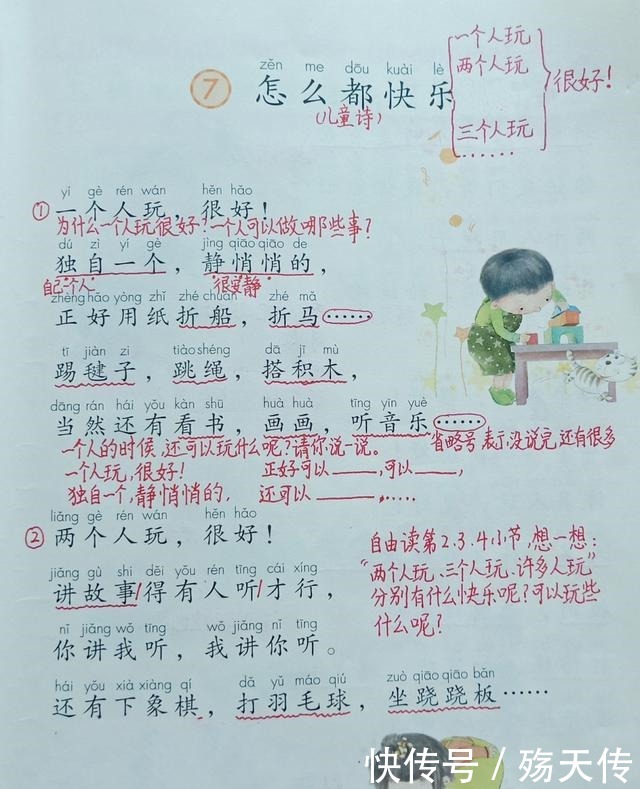 zěn me dōu kuài lè
⑦ 怎么都快乐
(儿童诗)
一个人玩
两个人玩
三个人玩
......
很好!
yí gè rén wán hěn hǎo
① 一个人玩,很好!
为什么一个人玩很好?一个人可以做哪些事?
dú zì yí gè jìng qiāo qiāo de
独自一个,静悄悄的,
自己一个人 很安静
zhèng hǎo yòng zhǐ zhé chuán zhé mǎ
正好用纸折船,折马……
tī jiàn zi tiào shéng dā jī mù
踢毽子,跳绳,搭积木,
dāng rán hái yǒu kàn shū huà huà tīng yīn yuè
当然还有看书,画画,听音乐……
省略号表示没说完,还有很多
一个人的时候,还可以玩什么呢?请你说一说。
一个人玩,很好! 正好可以____,可以____,
独自一个,静悄悄的, 还可以____,……
liǎng gè rén wán hěn hǎo
② 两个人玩,很好!
jiǎng gù shi děi yǒu rén tīng cái xíng
讲故事/得有人听/才行,
nǐ jiǎng wǒ tīng wǒ jiǎng nǐ tīng
你讲我听,我讲你听。
hái yǒu xià xiàng qí dǎ yǔ máo qiú zuò qiāo qiāo bǎn
还有下象棋,打羽毛球,坐跷跷板……
自由读第2.3.4小节,想一想:
"两个人玩、三个人玩、许多人玩"
分别有什么快乐呢?可以玩些
什么呢?
快传号/殇天传